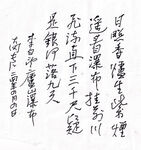 日照香爐生紫煙
遙看瀑布掛前川
飛流直下三千尺疑
是銀河落九天
李白廬山瀑布